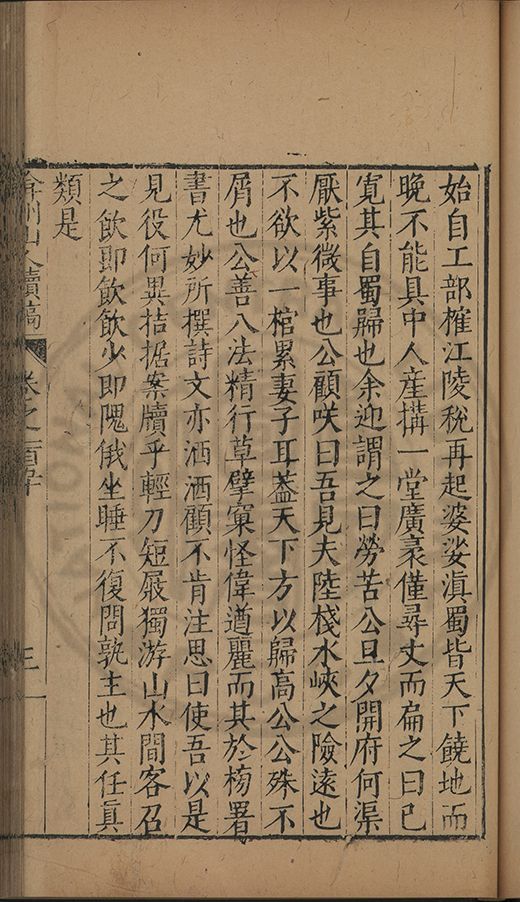 始自工部榷江陵稅再起婆娑滇蜀皆天下饒地而
晚不能具中人產搆一堂廣袤僅尋丈而扁之曰已
寬其自蜀歸也余迎謂之曰勞苦公旦夕開府何渠
厭紫薇事也公顧咲曰吾見夫陸棧水峽之險遠也
不欲以一棺累妻子耳葢天下方以歸高公公殊不
屑也公善八法精行草擘窠怪偉遒麗而其於牓署
書尤妙所撰詩文亦洒洒顧不肯注思曰使吾以是
見役何異拮据案牘乎輕刀短屐獨游山水間客召
之飲即飲飲少即隗俄坐睡不復問孰主也其任眞
類是
弇州山人續稿 卷之一百
三